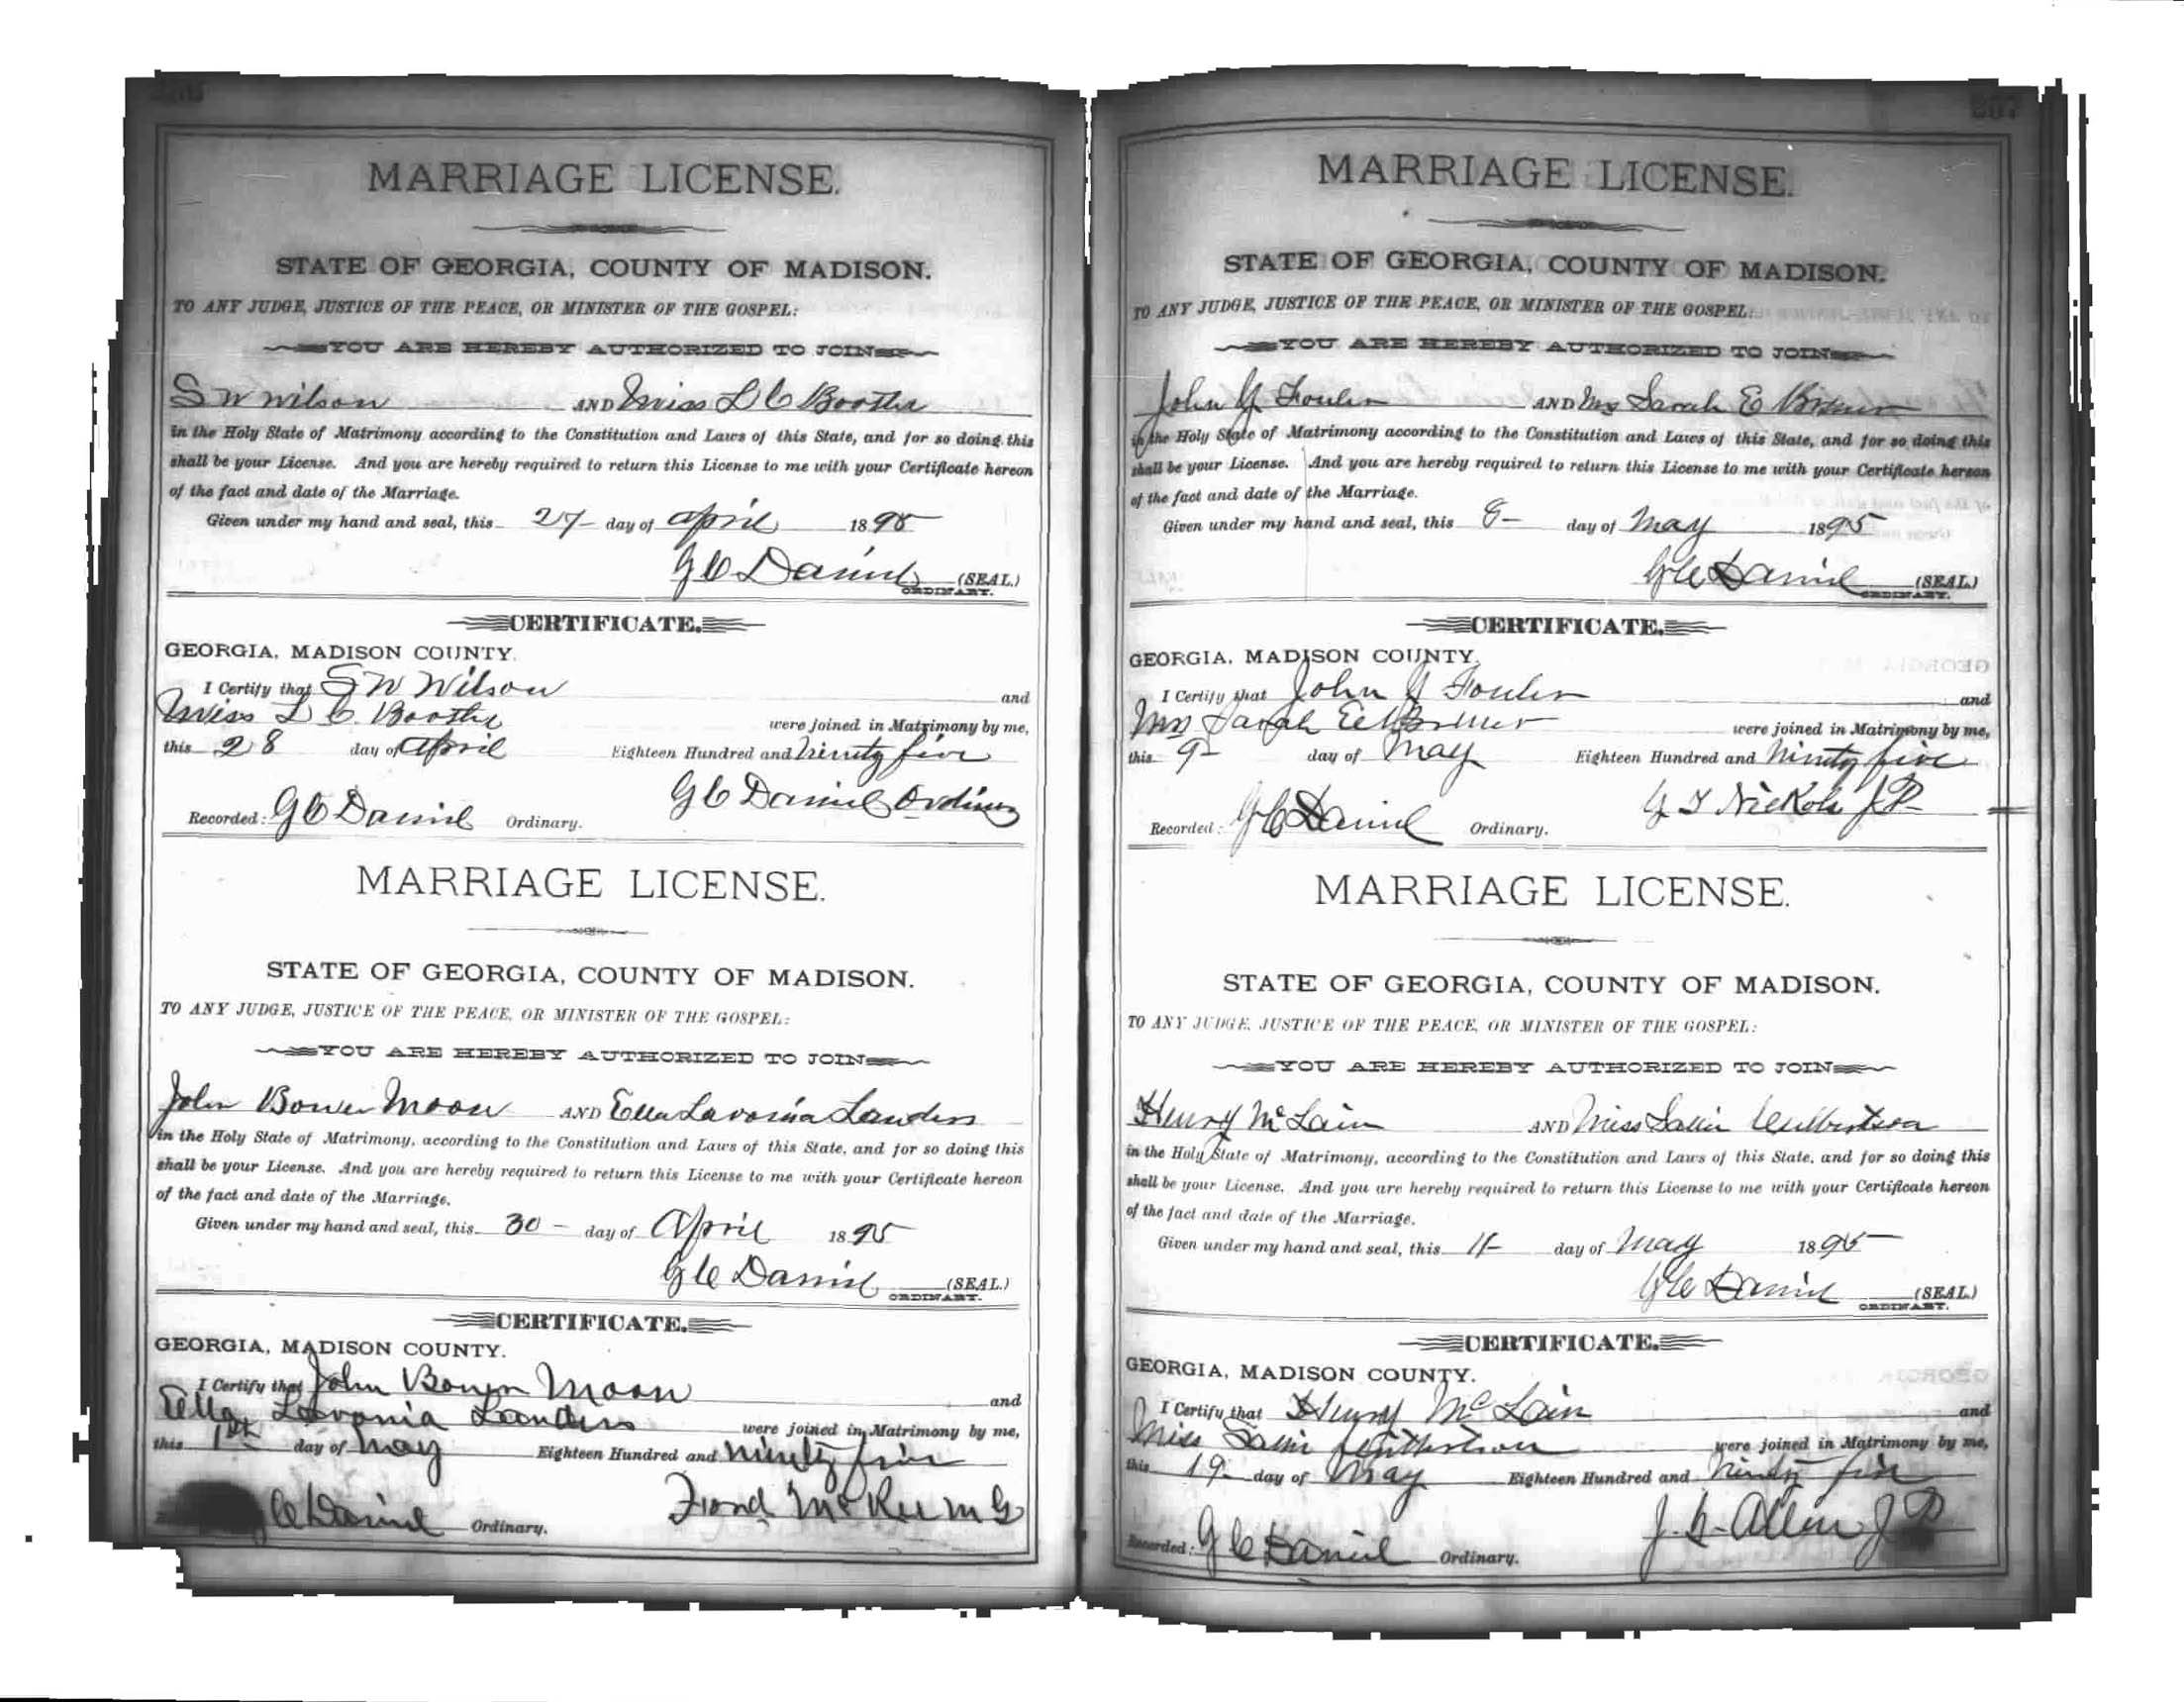 MARRIAGE LICENSE.
STATE OF GEORGIA, COUNTY OF MADISON.
TO ANY JUDGE, JUSTICE OF THE PEACE, OR MINISTER OF THE GOSPEL:
YOU ARE HEREBY AUTHORIZED TO JOIN
S W Wilson AND Miss L C Booth
in the Holy State of Matrimony according to the Constitution and Laws of this State, and for so doing this
shall be your License. And you are hereby required to return this License to me with your Certificate hereon
of the fact and date of the Marriage.
Given under my hand and seal, this 27 day of April 1895
G C Daniel (SEAL.)
ORDINARY.
CERTIFICATE.
GEORGIA, MADISON COUNTY.
I Certify that S W Wilson and
Miss L C. Booth were joined in Matrimony by me,
this 28 day of April Eighteen Hundred and Ninety five
G C Daniel Ordinary
Recorded: G C Daniel Ordinary.
MARRIAGE LICENSE.
STATE OF GEORGIA, COUNTY OF MADISON.
TO ANY JUDGE, JUSTICE OF THE PEACE, OR MINISTER OF THE GOSPEL:
YOU ARE HEREBY AUTHORIZED TO JOIN
John Bower Moon AND Ella Lavonia Landers
in the Holy State of Matrimony, according to the Constitution and Laws of this State, and for so doing this
shall be your License. And you are hereby required to return this License to me with your Certificate hereon
of the fact and date of the Marriage.
Given under my hand and seal, this 30 - day of April 1895
G C Daniel (SEAL.)
ORDINARY.
CERTIFICATE.
GEORGIA, MADISON COUNTY.
I Certify that John Bower Moon and
Ella Lavonia Landers were joined in Matrimony by me,
this 1st day of May Eighteen Hundred and ninety five
Ford McRee M G
G C Daniel Ordinary.
307
MARRIAGE LICENSE.
STATE OF GEORGIA, COUNTY OF MADISON.
TO ANY JUDGE, JUSTICE OF THE PEACE, OR MINISTER OF THE GOSPEL:
YOU ARE HEREBY AUTHORIZED TO JOIN
John Y. Fowler AND Mrs Sarah E
in the Holy State of Matrimony according to the Constitution and Laws of this State, and for so doing this
shall be your License. And you are hereby required to return this License to me with your Certificate hereon
of the fact and date of the Marriage.
Given under my hand and seal, this 8- day of May 1895
G C Daniel (SEAL.)
ORDINARY.
CERTIFICATE.
GEORGIA, MADISON COUNTY.
I Certify that John Y Fowler and
Mrs Sarah were joined in Matrimony by me,
this 9- day of May Eighteen Hundred and Ninety five
Nickols J.P.
Recorded: G C Daniel Ordinary.
MARRIAGE LICENSE.
STATE OF GEORGIA, COUNTY OF MADISON.
TO ANY JUDGE, JUSTICE OF THE PEACE, OR MINISTER OF THE GOSPEL:
YOU ARE HEREBY AUTHORIZED TO JOIN
Henry McLain AND Miss Sallie Culbertson
in the Holy State of Matrimony, according to the Constitution and Laws of this State, and for so doing this
shall be your License. And you are hereby required to return this License to me with your Certificate hereon
of the fact and date of the Marriage.
Given under my hand and seal, this 11- day of May 1895
G C Daniel (SEAL.)
ORDINARY.
CERTIFICATE.
GEORGIA, MADISON COUNTY.
I Certify that Henry McLain and
Miss Sallie Culbertson were joined in Matrimony by me,
this 19- day of May Eighteen Hundred and Ninety five
J. G. Allen J P
Recorded: G C Daniel Ordinary.